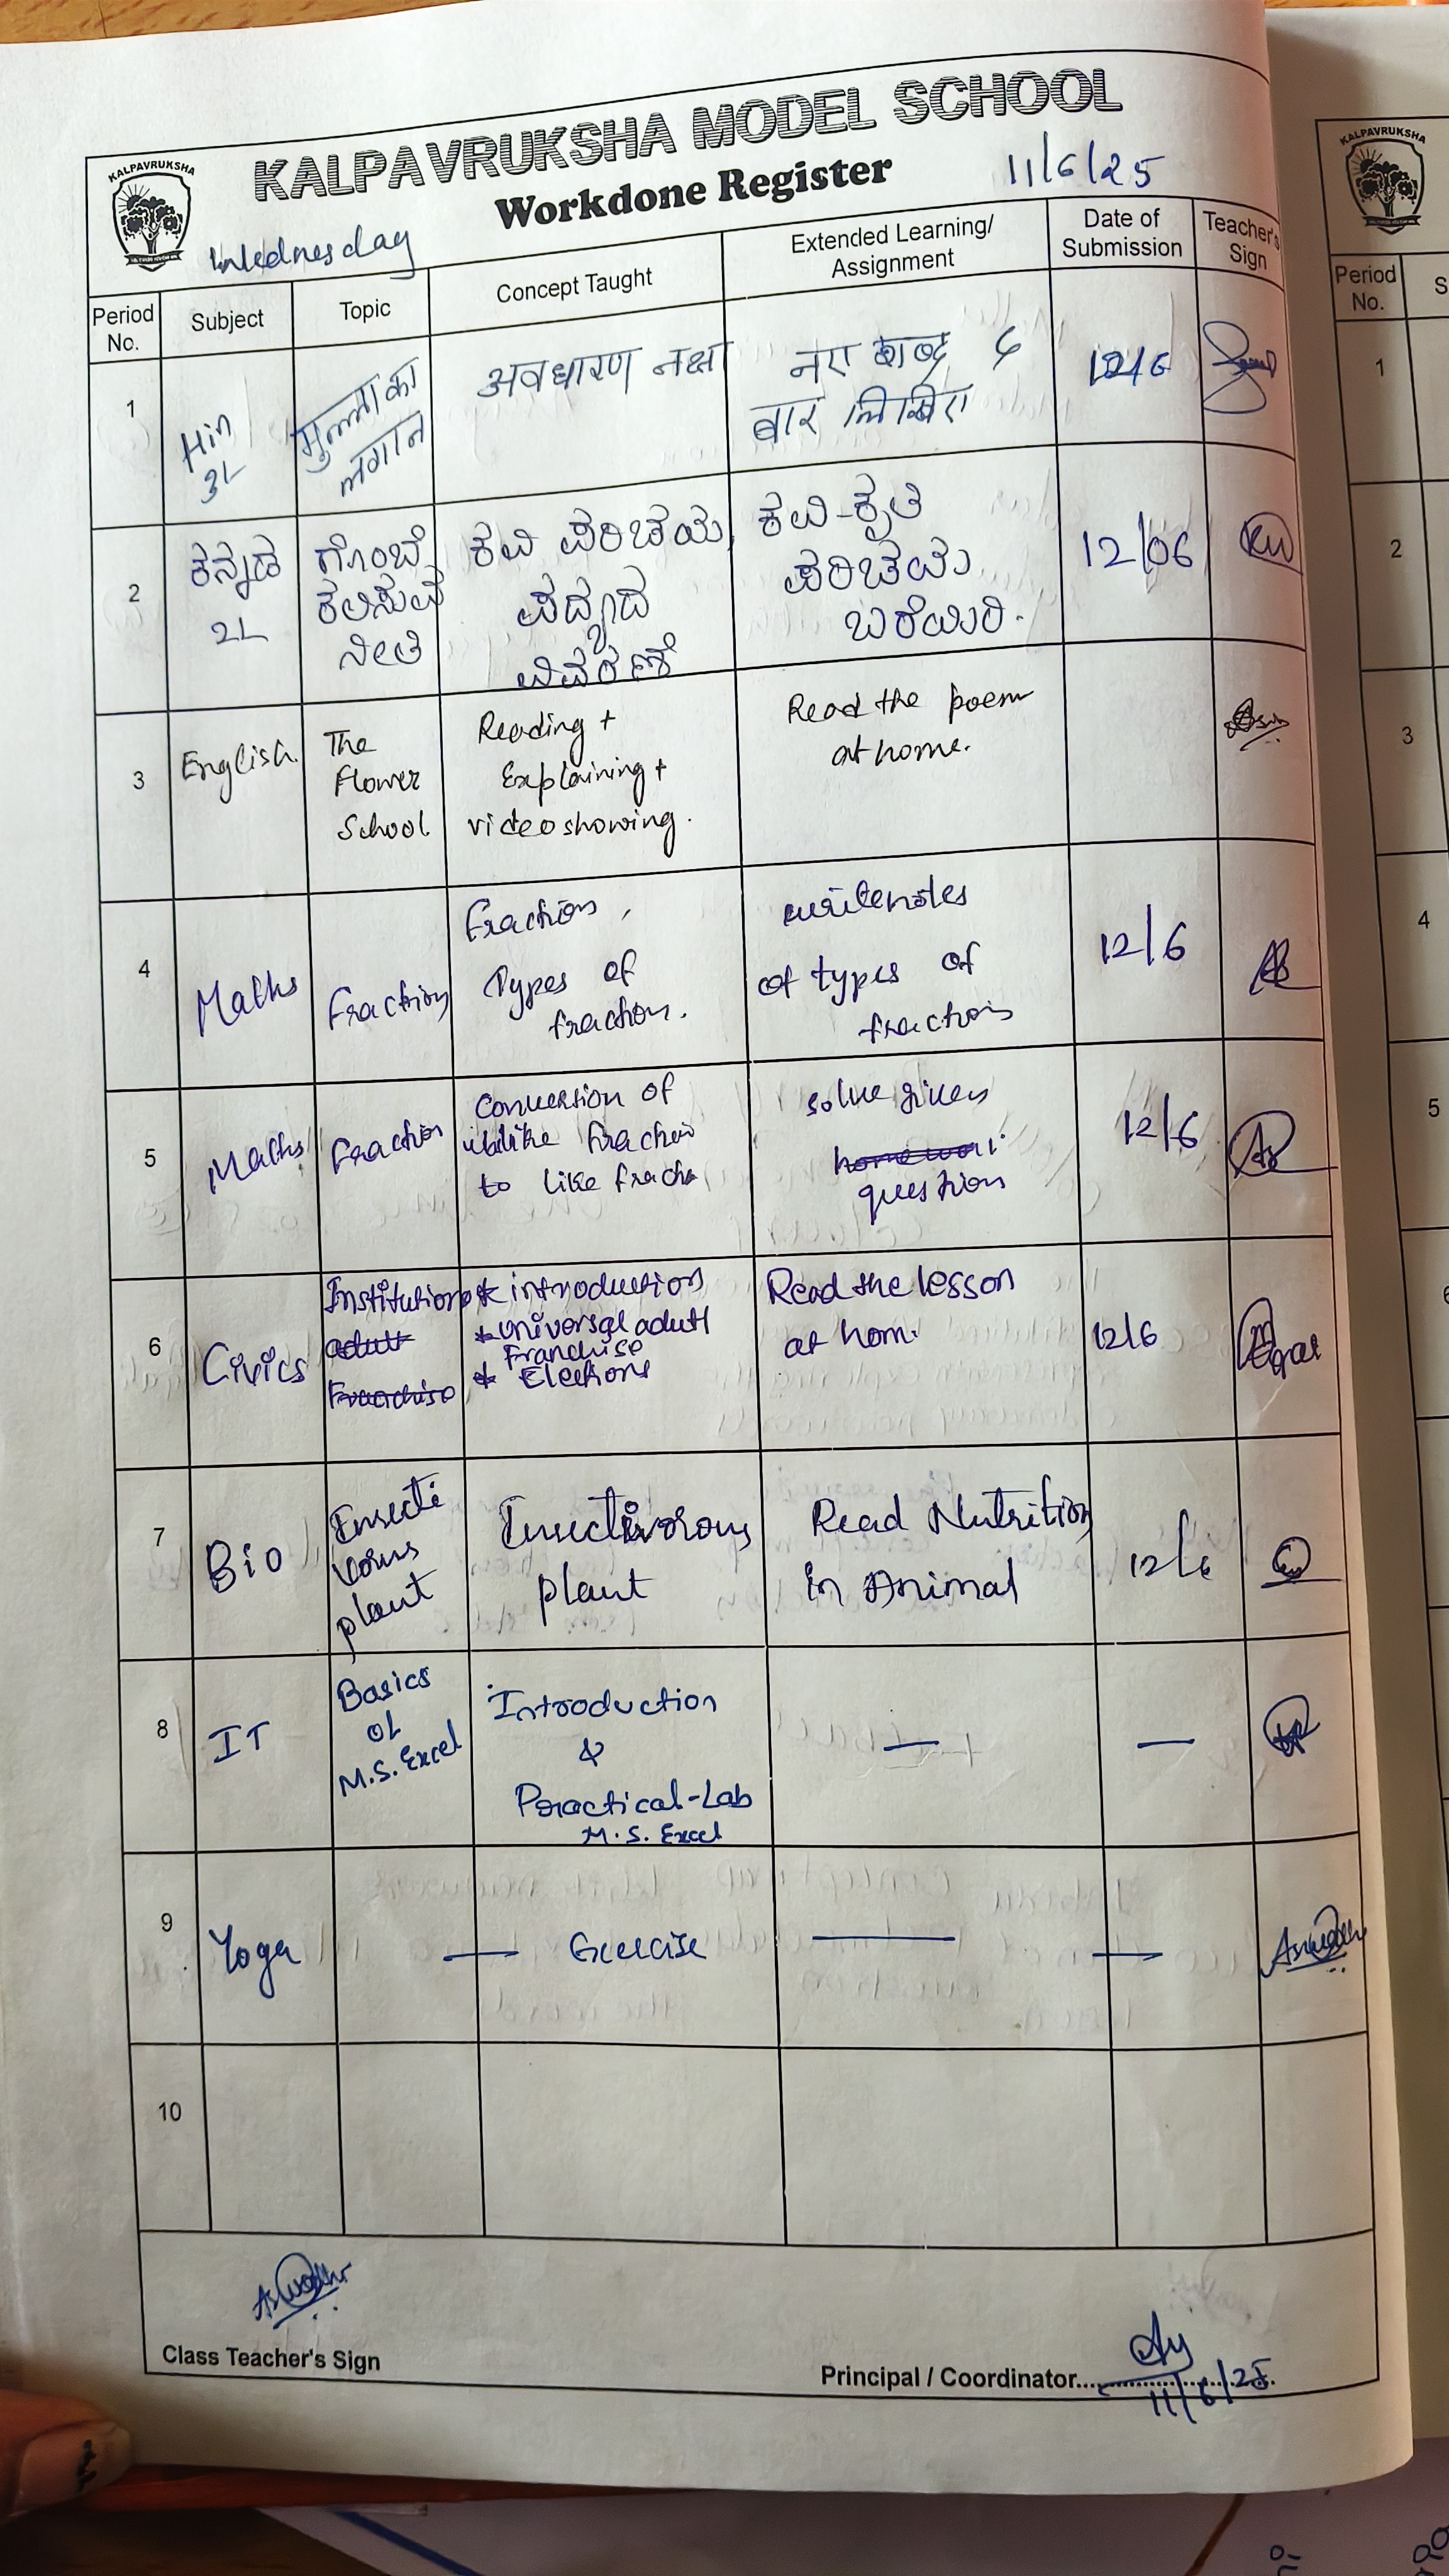 KALPAVRUKSHA MODEL SCHOOL
KALPAVRUKSHA
Workdone Register
11/6/25
Wednesday
Period No.
Subject
Topic
Concept Taught
Extended Learning/
Assignment
Date of
Submission
Teacher's
Sign
1
Hin
3L
मुल्ला का
लगान
अवधारण नक्षा
नए शब्द ८
बार लिखिए
12/6
2
ಕನ್ನಡ
2L
ಗೊಂಬೆ
ಕಲಿಸುವ
ನೀತಿ
ಕವಿ ಪರಿಚಯ,
ಪದ್ಯದ
ವಿವರಣೆ
ಕವಿ-ಕೃತಿ
ಪರಿಚಯ
ಬರೆಯಿರಿ.
12/06
3
English.
The
Flower
School.
Reading +
Explaining +
video showing.
Read the poem
at home.
4
Maths
Fraction
Fraction,
Types of
fraction.
write notes
of types of
fraction
12/6
5
Maths
Fraction
Conversion of
unlike fraction
to like fractn
solve given
question
12/6
6
Civics
Institution
adult
Franchise
* introduction
* Universal adutl
Franchise
* Elections
Read the lesson
at hom.
12/6
7
Bio
Insecti
vorus
plant
Insectivorous
plant
Read Nutrition
in Animal
12/6
8
IT
Basics
of
M.S. Excel
Introduction
&
Practical-Lab
M.S. Excel
—
—
9
Yoga
—
Exercise
—
—
10
Class Teacher's Sign
Principal / Coordinator
11/6/25
KALPAVRUKSHA
Period
No.
S
1
2
3
4
5